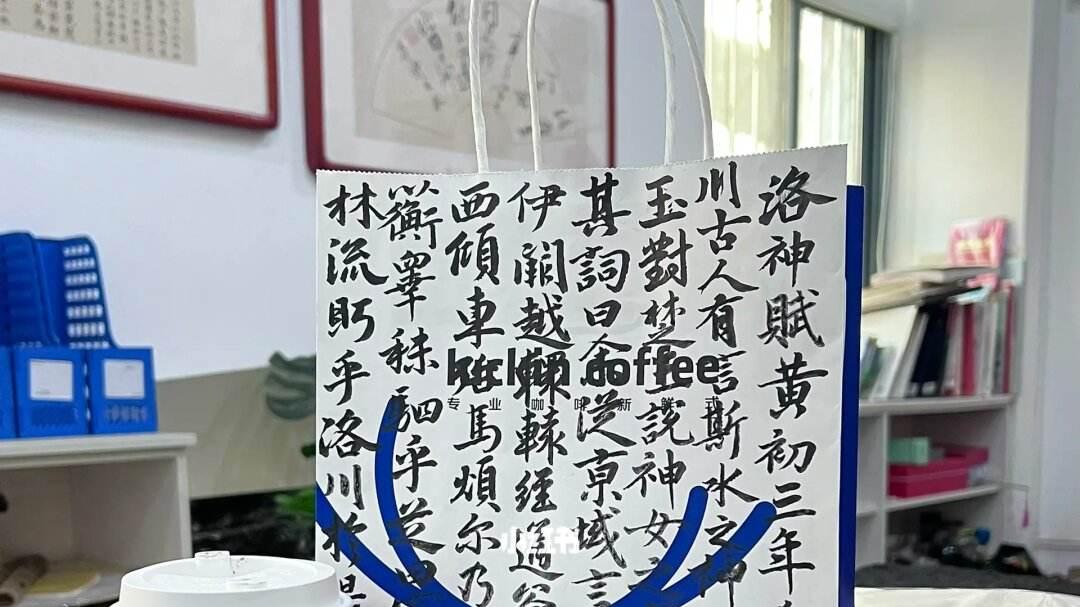 洛神賦黄初三年
川古人有言斯水之神
玉對楚王說神女之
其詞曰余從京域言
伊闕越轘轅經通谷
西傾車殆馬煩尔乃
蘅皋秣駟乎芝田
林流眄乎洛川於是
luckin coffee
专业咖啡新鲜式
小红书